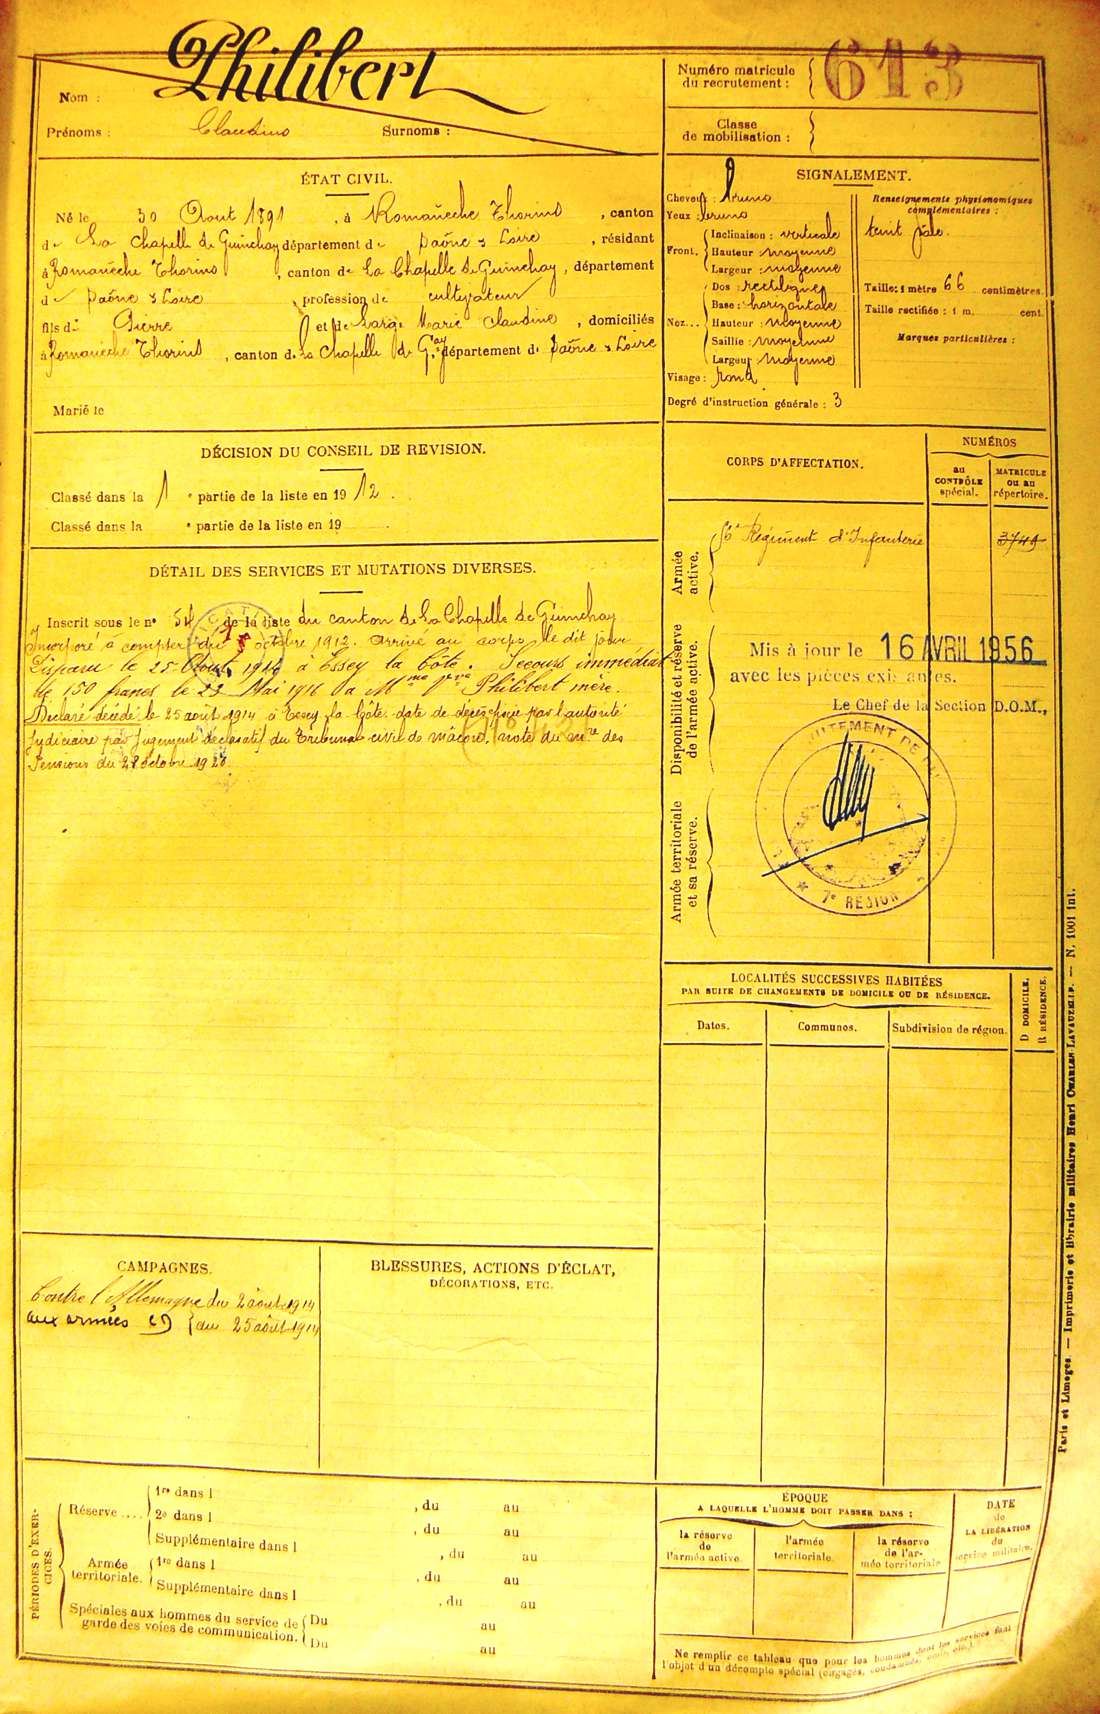 Nom : Philibert
Prénoms : Claudius Surnoms :
Numéro matricule du recrutement : 613
Classe de mobilisation :
ÉTAT CIVIL.
Né le 30 Aout 1891, à Romanèche Thorins, canton
de La Chapelle de Guinchay département de Saône & Loire, résidant
à Romanèche Thorins, canton de La Chapelle de Guinchay, département
de Saône & Loire profession de cultivateur
fils de Pierre et de Large Marie Claudine, domiciliés
à Romanèche Thorins, canton de La Chapelle de G.ay département de Saône & Loire
Marié le
SIGNALEMENT.
Cheveux : bruns
Yeux : bruns
Front. Inclinaison : verticale
Hauteur : moyenne
Largeur : moyenne
Nez... Dos : rectiligne
Base : horizontale
Hauteur : moyenne
Saillie : moyenne
Largeur : moyenne
Visage : rond
Degré d'instruction générale : 3
Renseignements physionomiques complémentaires :
teint pâle.
Taille : 1 mètre 66 centimètres.
Taille rectifiée : 1 m. cent.
Marques particulières :
DÉCISION DU CONSEIL DE REVISION.
Classé dans la 1 e partie de la liste en 1912.
Classé dans la e partie de la liste en 19
DÉTAIL DES SERVICES ET MUTATIONS DIVERSES.
Inscrit sous le n° 54 de la liste du canton de La Chapelle de Guinchay
Incorporé à compter du 8 octobre 1912. Arrivé au corps le dit jour
Disparu le 25 Aout 1914 à Essey la Côte. Secours immédiat
de 150 francs le 23 Mai 1916 à Mme Vve Philibert mère.
Déclaré décédé le 25 août 1914 à Essey la Côte date de décès fixée par l'autorité
judiciaire par Jugement déclaratif du Tribunal civil de Macon, note du Mre des
Pensions du 28 octobre 1920
CORPS D'AFFECTATION.
NUMÉROS
au CONTRÔLE spécial.
MATRICULE ou au répertoire.
Armée active.
Régiment d'Infanterie
3749
Disponibilité et réserve de l'armée active.
Mis à jour le 16 AVRIL 1956
avec les pièces existantes.
Le Chef de la Section D.O.M.,
7e REGION
Armée territoriale et sa réserve.
LOCALITÉS SUCCESSIVES HABITÉES
PAR SUITE DE CHANGEMENTS DE DOMICILE OU DE RÉSIDENCE.
Dates.
Communes.
Subdivision de région.
D DOMICILE.
R RÉSIDENCE.
CAMPAGNES.
Contre l'Allemagne du 2 août 1914
aux armées au 25 août 1914
BLESSURES, ACTIONS D'ÉCLAT,
DÉCORATIONS, ETC.
PÉRIODES D'EXERCICES.
Réserve .... 1re dans l , du au
2e dans l , du au
Supplémentaire dans l , du au
Armée territoriale. 1re dans l , du au
Supplémentaire dans l , du au
Spéciales aux hommes du service de garde des voies de communication. Du au
Du au
ÉPOQUE
A LAQUELLE L'HOMME DOIT PASSER DANS :
la réserve de l'armée active.
l'armée territoriale.
la réserve de l'armée territoriale
DATE de LA LIBÉRATION du service militaire.
Ne remplir ce tableau que pour les hommes dont les services font
l'objet d'un décompte spécial (engagés, condamnés, omis, etc.).
Paris et Limoges. — Imprimerie et librairie militaires Henri CHARLES-LAVAUZELLE. — N. 1001 int.